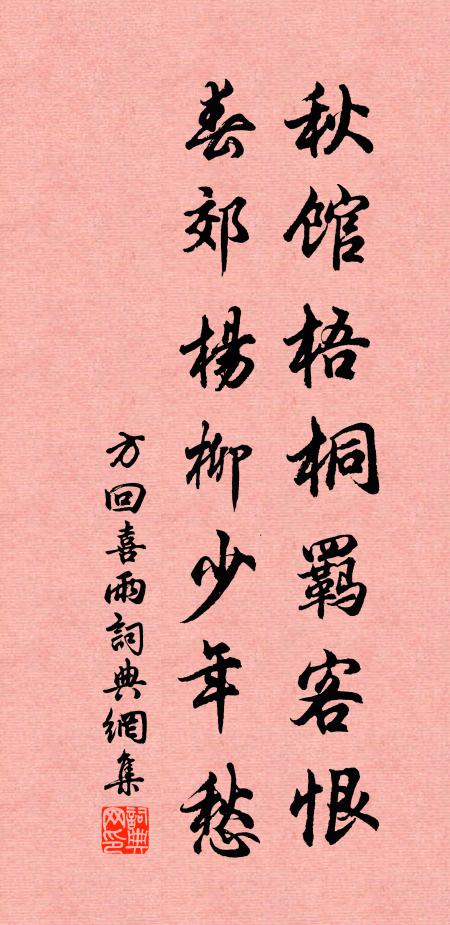 秋館梧桐羈客恨
春郊楊柳少年愁
方回喜雨詞典網集
詞典网印